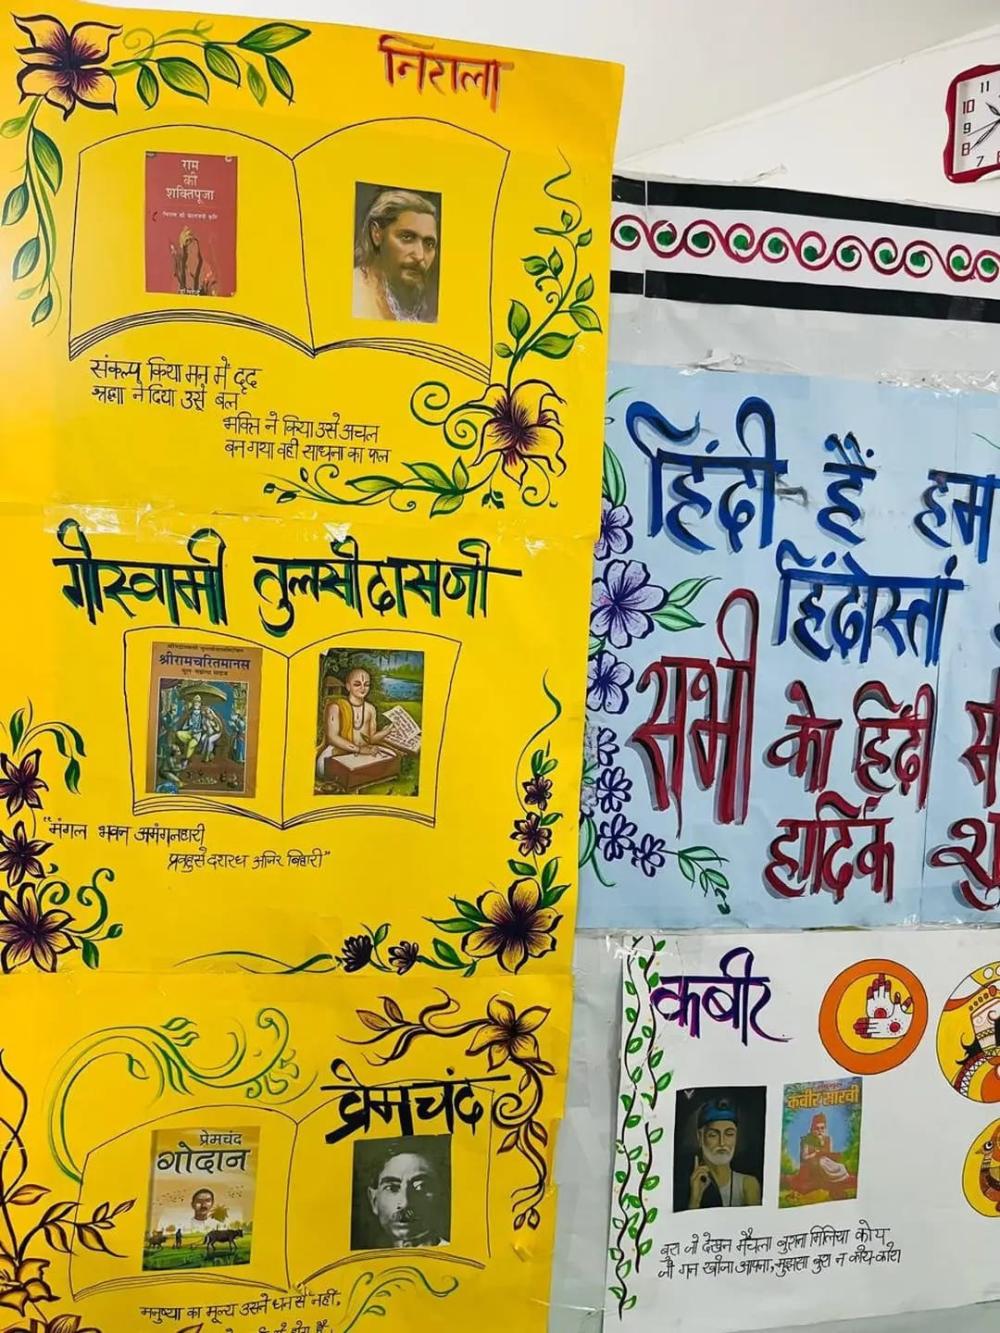 निराला
राम
की
शक्तिपूजा
संकल्प किया मन में दृढ़
श्रद्धा ने दिया उसे बल
भक्ति ने किया उसे अचल
बन गया वही साधना का फल
गोस्वामी तुलसीदासजी
श्रीरामचरितमानस
"मंगल भवन अमंगलहारी
दशरथ अजिर बिहारी"
प्रेमचंद
प्रेमचंद
गोदान
मनुष्या का मूल्य उसने धन से नहीं,
11
10
9
8
7
हिंदी हैं हम
हिंदोस्तां
सभी को हिंदी
हार्दिक
कबीर
कबीर साखी
बुरा जो देखन मैचला बुराना मिलिया कोय
जो मन खोजा आपना, मुझसा बुरा न कोय